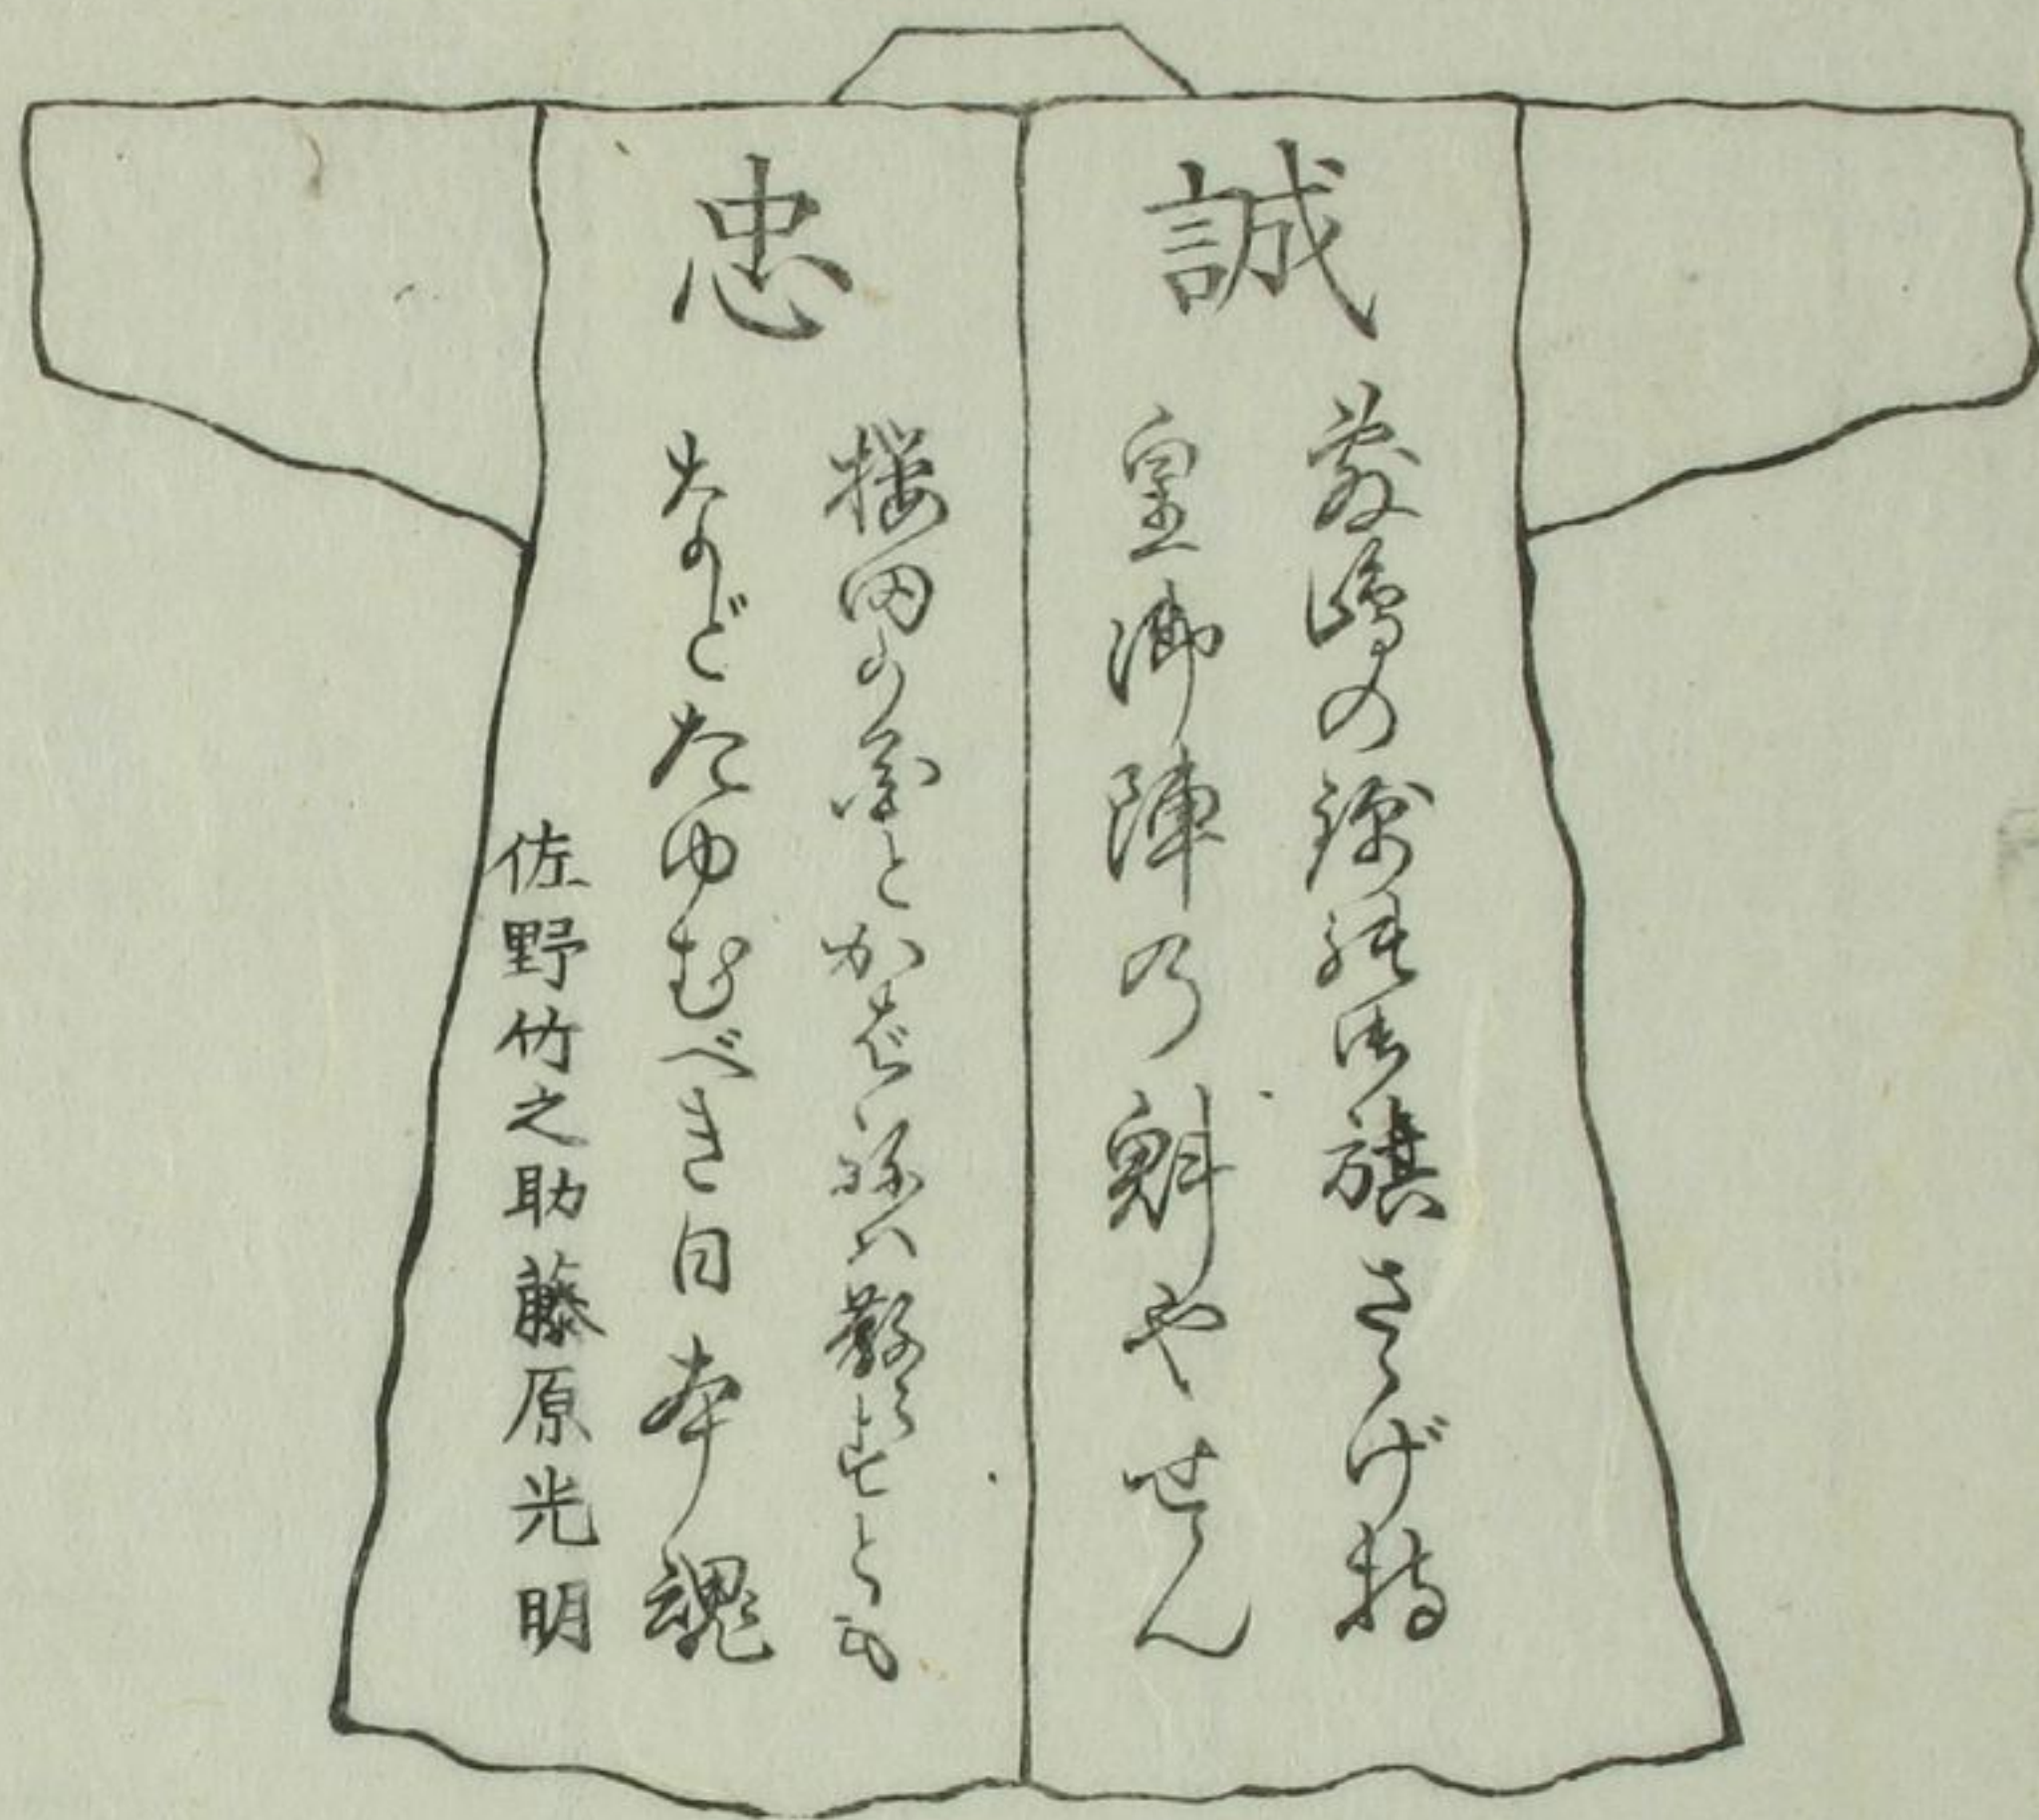 誠
敷嶋の錦能御旗さゝげ持
皇御陣乃魁やせん
忠
桜田の花とかばねハ散らすとも
などたゆむべき日本魂
佐野竹之助藤原光明